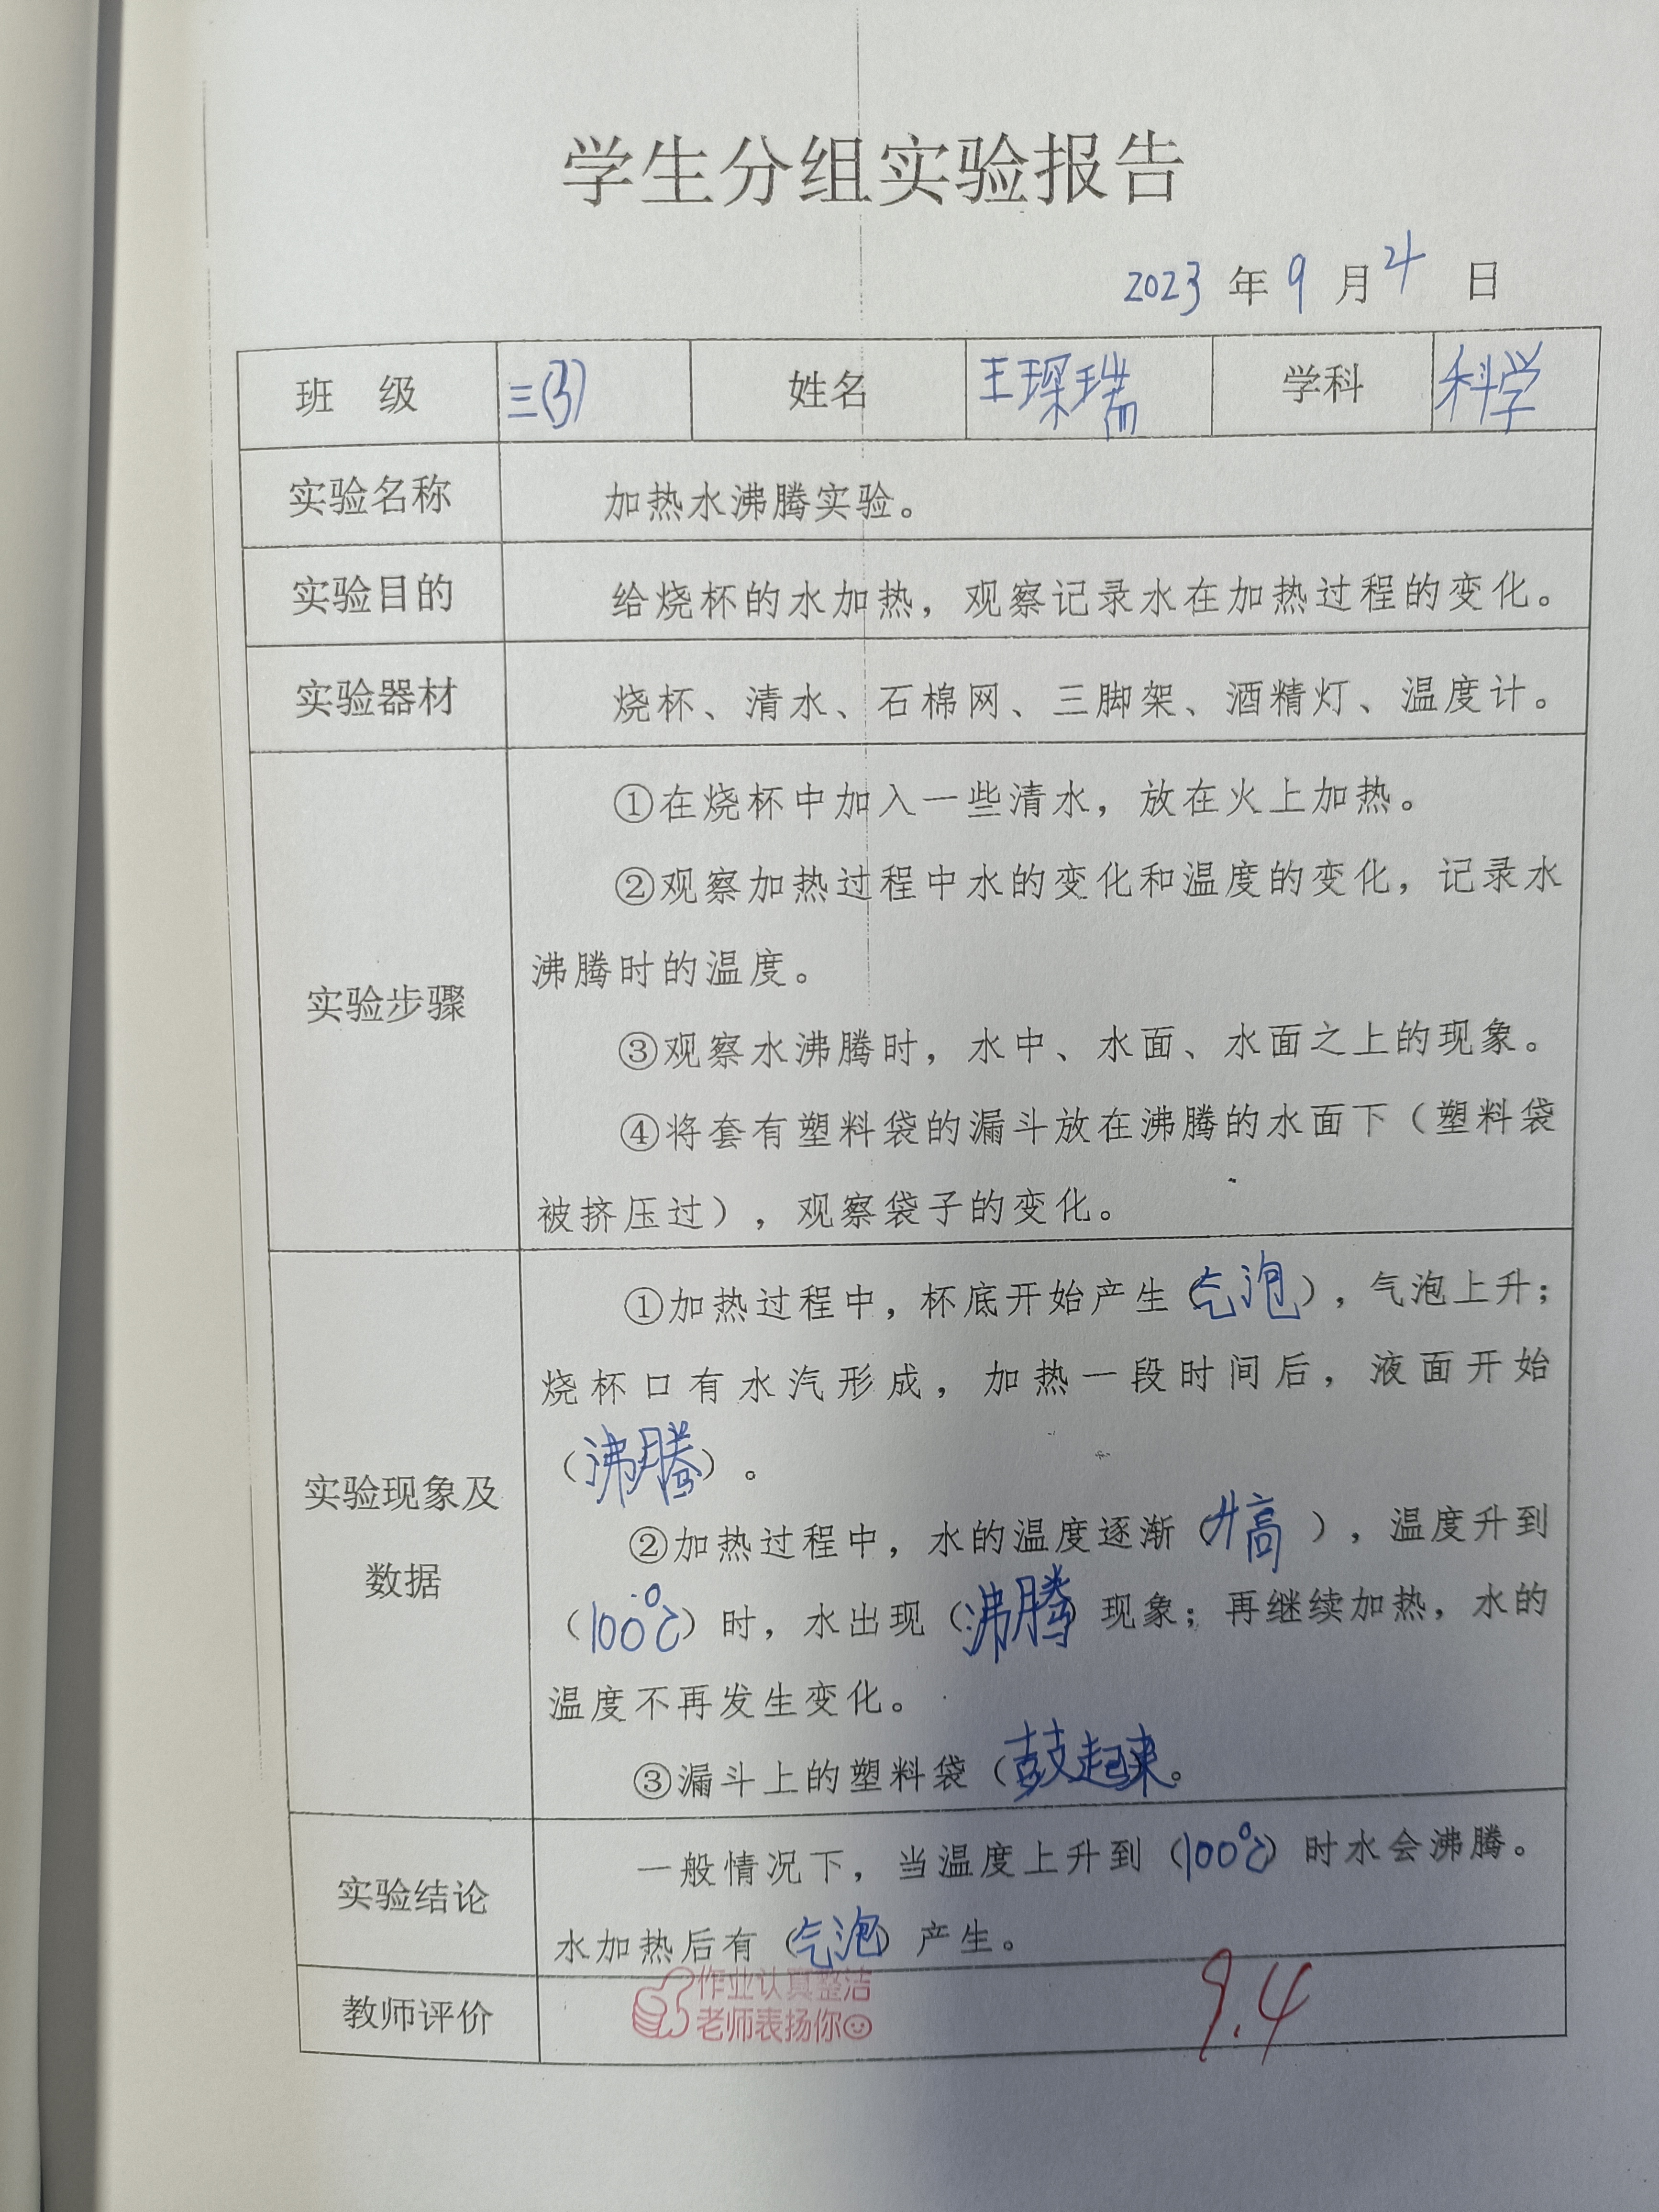 学生分组实验报告
2023 年 9 月 4 日
班 级 三(3) 姓名 王琛瑞 学科 科学
实验名称 加热水沸腾实验。
实验目的 给烧杯的水加热，观察记录水在加热过程的变化。
实验器材 烧杯、清水、石棉网、三脚架、酒精灯、温度计。
实验步骤
①在烧杯中加入一些清水，放在火上加热。
②观察加热过程中水的变化和温度的变化，记录水
沸腾时的温度。
③观察水沸腾时，水中、水面、水面之上的现象。
④将套有塑料袋的漏斗放在沸腾的水面下（塑料袋
被挤压过），观察袋子的变化。
实验现象及
数据
①加热过程中，杯底开始产生（气泡），气泡上升；
烧杯口有水汽形成，加热一段时间后，液面开始
（沸腾）。
②加热过程中，水的温度逐渐（升高），温度升到
（100℃）时，水出现（沸腾）现象；再继续加热，水的
温度不再发生变化。
③漏斗上的塑料袋（鼓起来。
实验结论
一般情况下，当温度上升到（100℃）时水会沸腾。
水加热后有（气泡）产生。
教师评价
作业认真整洁
老师表扬你
9.4